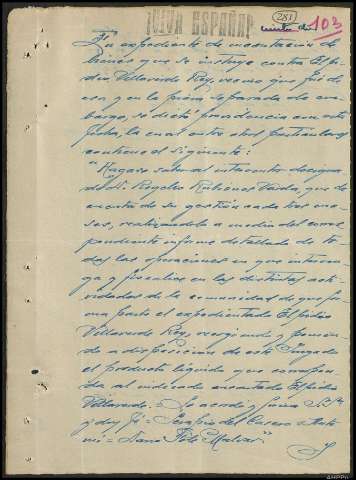 ¡VIVA ESPAÑA!
281
103
En expediente de incautacion de
bienes que se instruye contra Elpi-
dio Villaverde Rey, vecino que fué de
esa, y en la pieza separada de em-
bargo, se dictó providencia con esta
fecha, la cual entre otros particulares
contiene el siguiente:
"Hagase saber al interventor designa-
do D. Rogelio Rubianes Varda, que de
cuenta de su gestión cada tres me-
ses, realizandola a medio del corres-
pondiente informe detallado de to-
das las operaciones en que interven-
ga y fiscalice en las distintas acti-
vidades de la comunidad de que for-
ma parte el expedientado Elpidio
Villaverde Rey, recogiendo y ponien-
do a disposicion de este Juzgado
el producto liquido que correspon-
da al indicado encartado Elpidio
Villaverde. = Lo acordó y firma S.Sª
y doy fé = Serafin del Casero = Ante
mi =